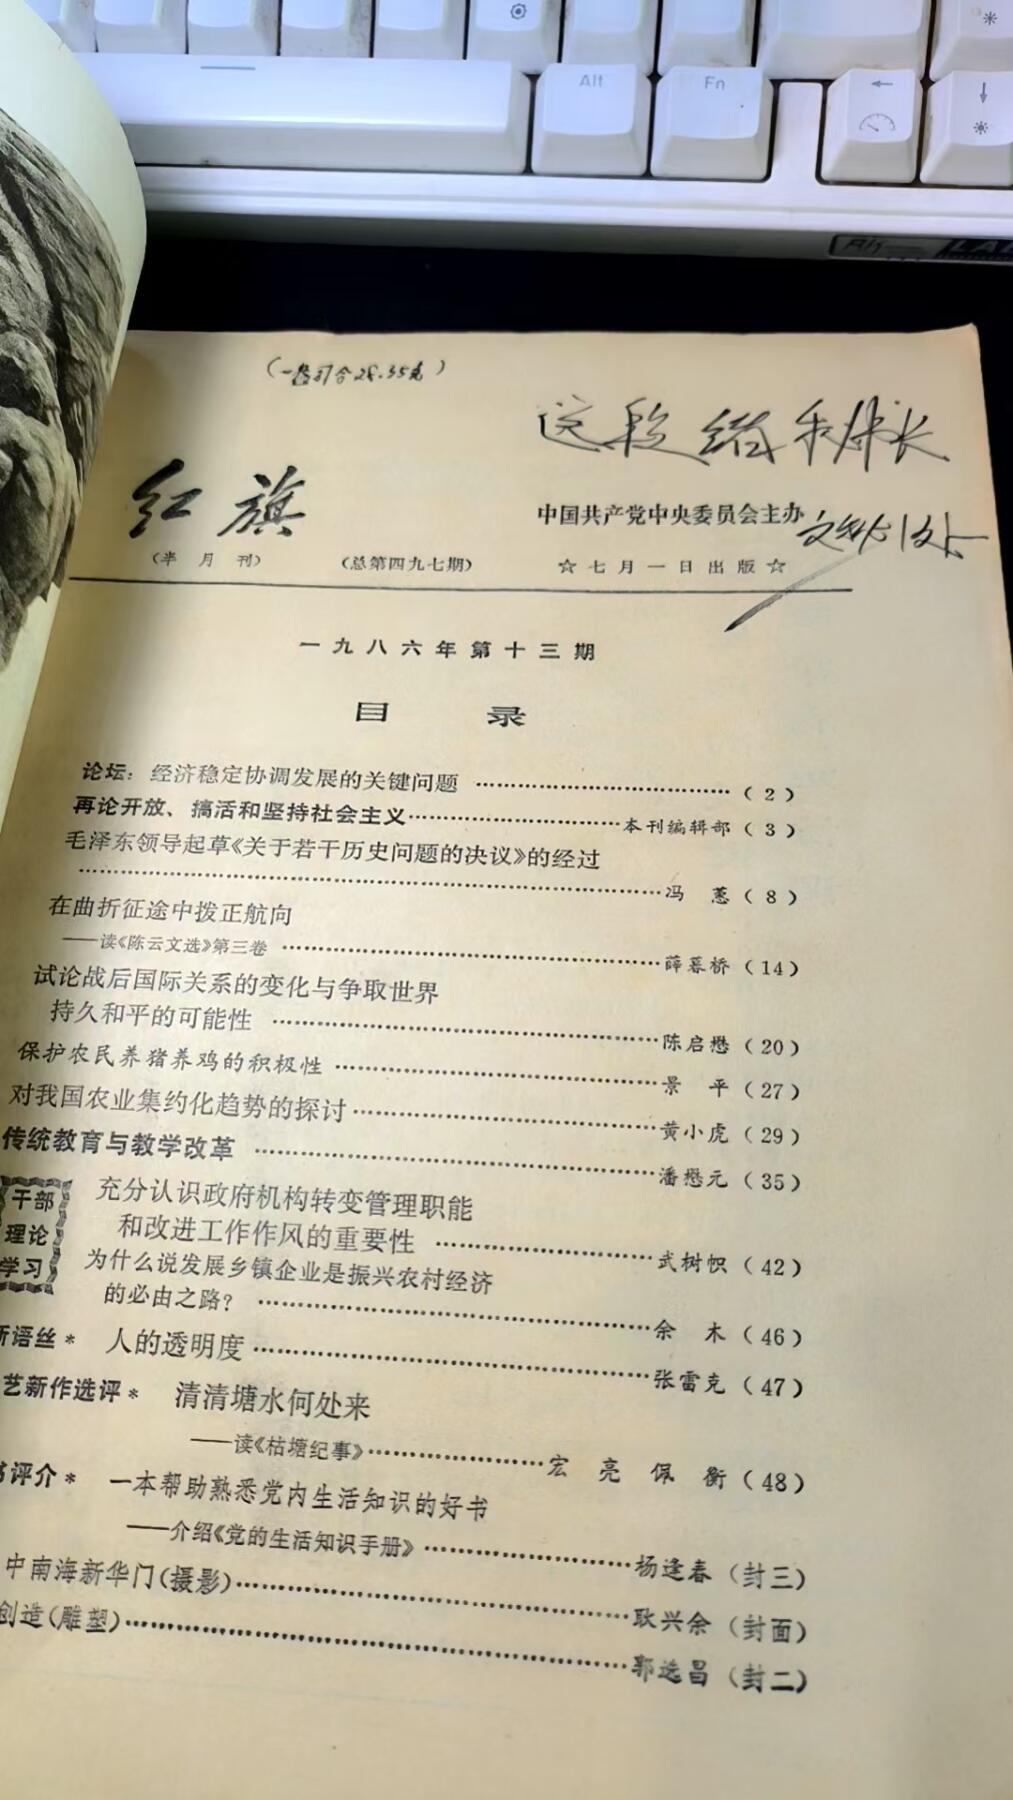 Alt
Fn
红旗
中国共产党中央委员会主办
(半月刊)
(总第四九七期)
☆七月一日出版☆
一九八六年第十三期
目录
论坛：经济稳定协调发展的关键问题 …… (2)
再论开放、搞活和坚持社会主义……本刊编辑部 (3)
毛泽东领导起草《关于若干历史问题的决议》的经过
……冯 蕙 (8)
在曲折征途中拨正航向
——读《陈云文选》第三卷 ……薛暮桥 (14)
试论战后国际关系的变化与争取世界
持久和平的可能性 ……陈启懋 (20)
保护农民养猪养鸡的积极性 ……景 平 (27)
对我国农业集约化趋势的探讨……黄小虎 (29)
传统教育与教学改革 ……潘懋元 (35)
干部
理论
学习
充分认识政府机构转变管理职能
和改进工作作风的重要性 ……武树帜 (42)
为什么说发展乡镇企业是振兴农村经济
的必由之路？ ……余 木 (46)
新语丝* 人的透明度……张雷克 (47)
艺新作选评* 清清塘水何处来
——读《枯塘纪事》……宏 亮 佩 衡 (48)
书评介* 一本帮助熟悉党内生活知识的好书
——介绍《党的生活知识手册》……杨逢春 (封三)
中南海新华门(摄影)……耿兴余 (封面)
创造(雕塑)……郭选昌 (封二)